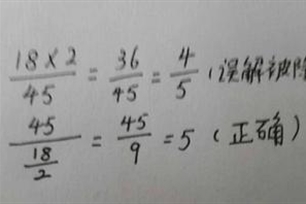 18×2/45 = 36/45 = 4/5 (误解被除
45/(18/2) = 45/9 = 5 (正确)